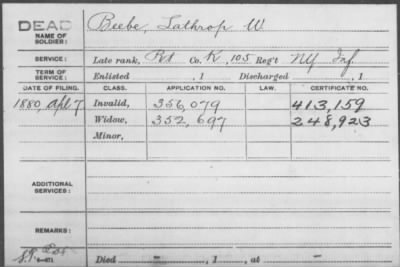 DEAD Beebe, Lathrop W.
NAME OF SOLDIER:
SERVICE: Late rank, Pvt Co. K, 105 Reg't NY Inf.
TERM OF SERVICE: Enlisted , 1 Discharged , 1
DATE OF FILING. CLASS. APPLICATION NO. LAW. CERTIFICATE NO.
1880, Apl 7 Invalid, 356,079 413,159
Widow, 352,697 248,923
Minor,
ADDITIONAL SERVICES:
REMARKS:
Died – , 1 , at –